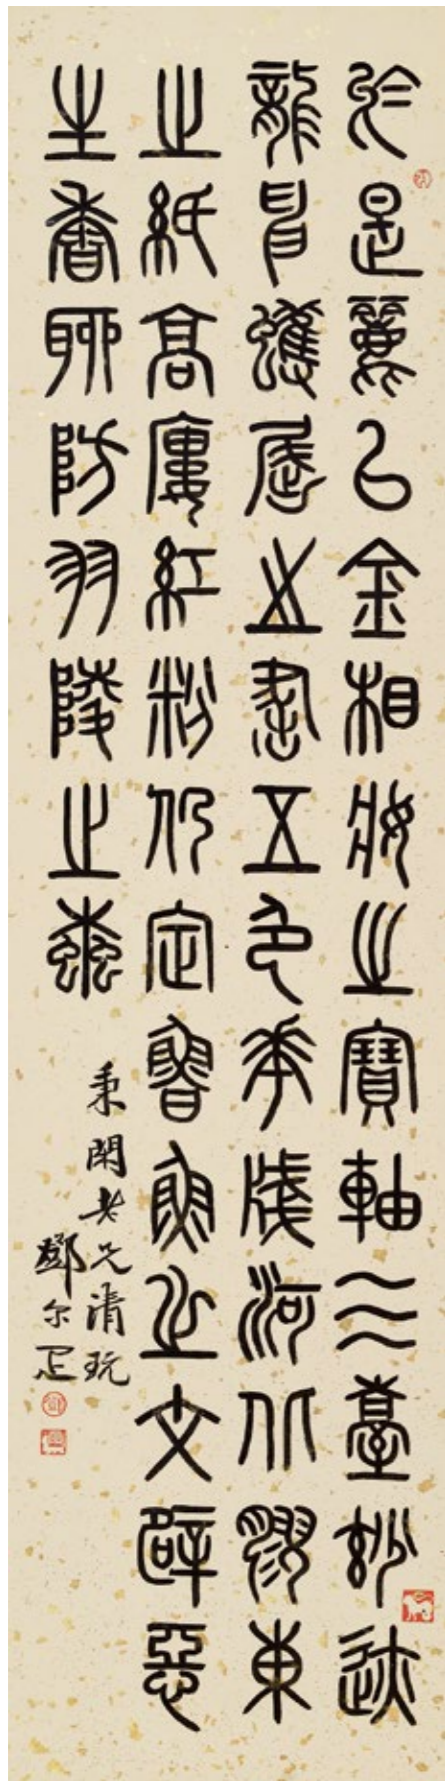 於是麗以金相妝之寶軸三臺妙迹
龍申蠖屈之書五色華牋河北膠東
之紙高廔紅粉仍定魯魚之文辟惡
生香聊防羽陵之蠹
秉閑老兄清玩
鄧尔疋